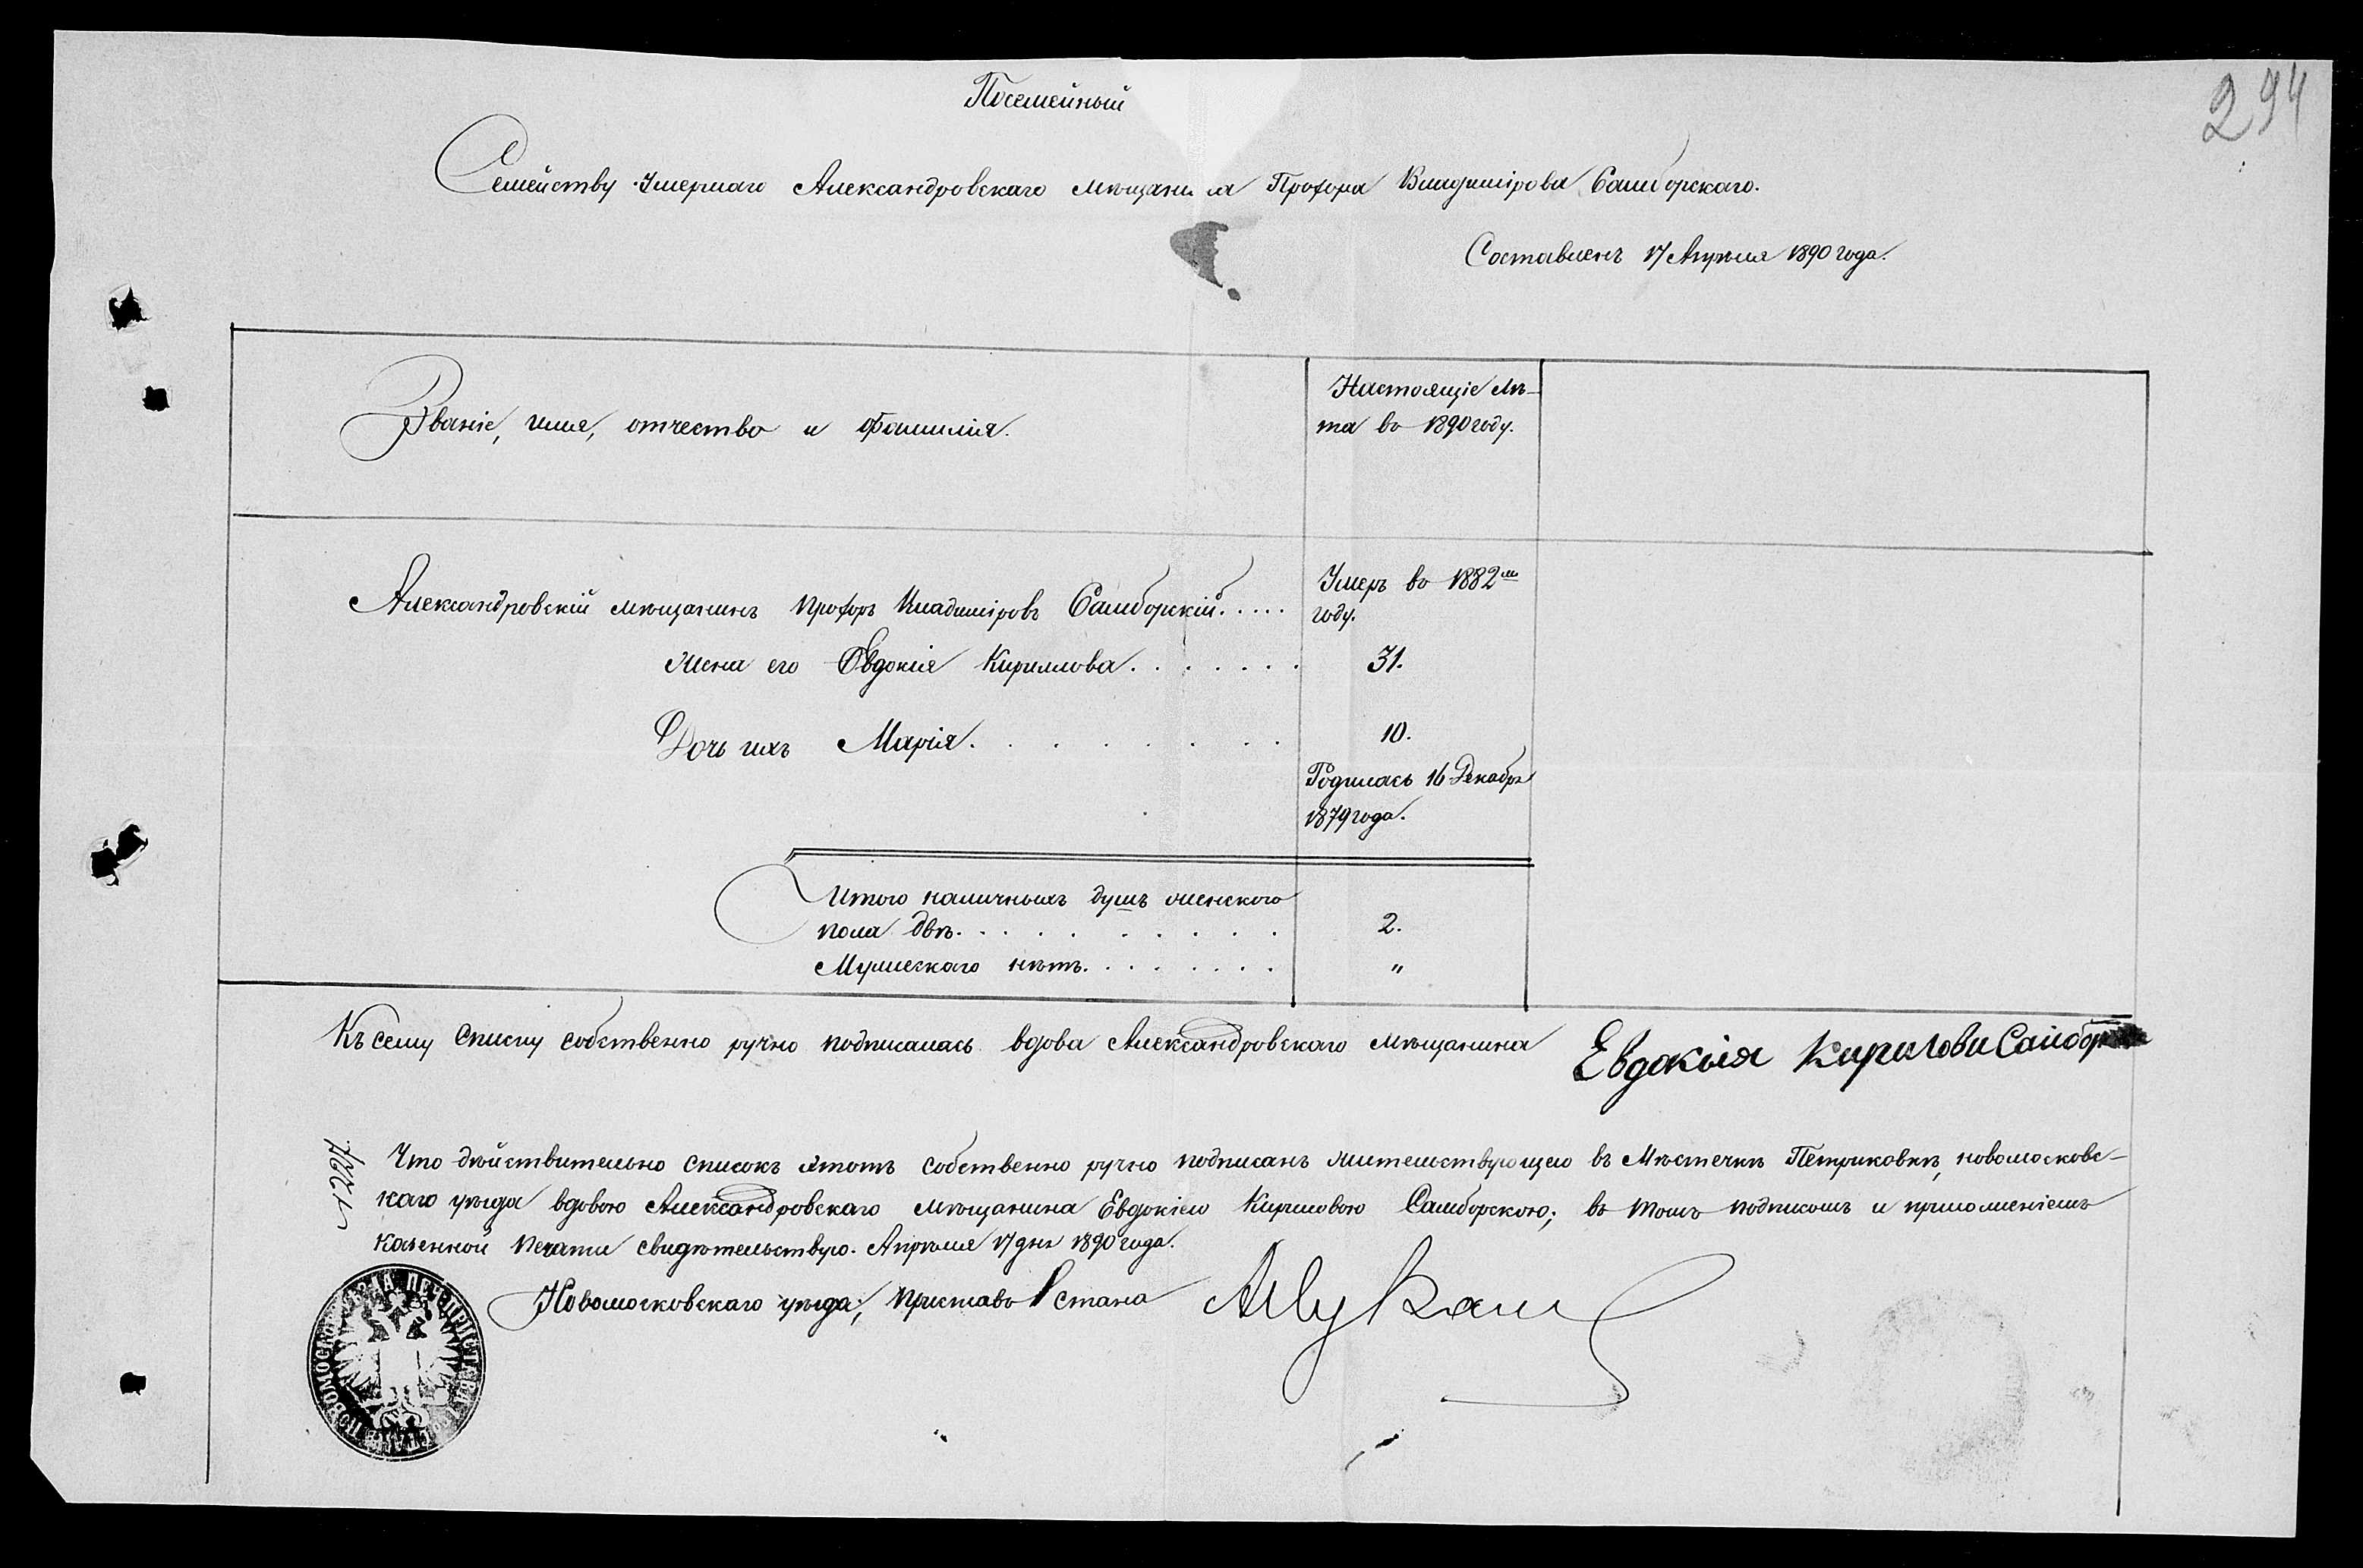 294
Посемейный
Семейству умершаго Александровскаго мѣщанина Прохора Владимірова Самборскаго.
Составленъ 17 Апрѣля 1890 года.
Званіе, имя, отчество и фамилія.
Настоящіе лѣ-
та во 1890 году.
Александровскій мѣщанинъ Прохоръ Владиміровъ Самборскій.....
Умеръ во 1882 м
году.
Жена его Евдокія Кирилова.......
31.
Дочь ихъ Марія.......
10.
Родилась 16 Декабря
1879 года.
Итого наличныхъ душъ женского
пола двѣ..........
2.
Мужескаго нѣтъ.......
"
Къ сему списку собственно ручно подписалась вдова Александровскаго мѣщанина Евдокыя Кирилови
№ 1227
Что дѣйствительно списокъ этотъ собственно ручно подписанъ жительствующею въ Мѣстечкѣ Петриковкѣ, новомосковс-
каго уѣзда вдовою Александровскаго мѣщанина Евдокіею Кириловою Самборскою; въ томъ подписомъ и приложеніемъ
казенной печати свидѣтельствую. Апрѣля 17 дня 1890 года.
Новомосковскаго уѣзда, Приставъ 1 стана